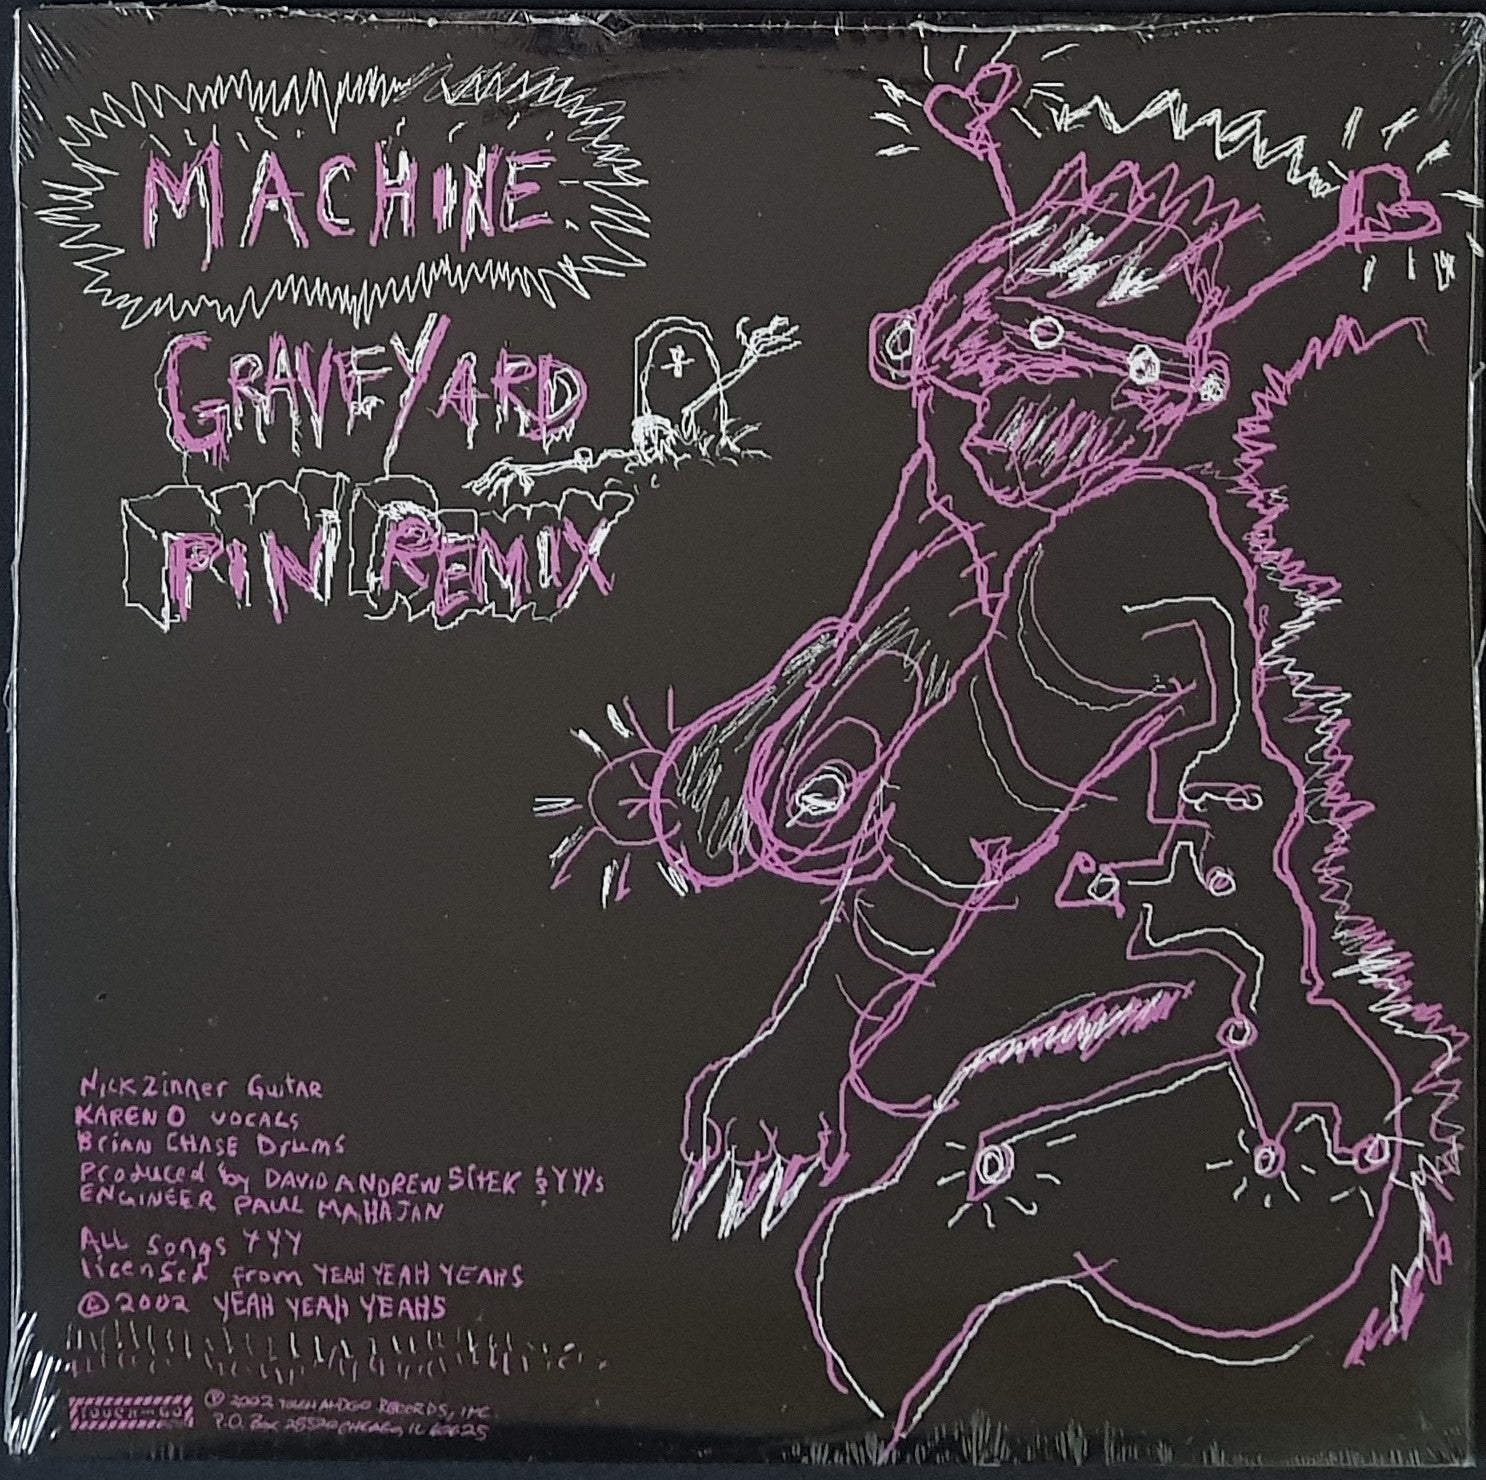 MACHINE
GRAVEYARD
PIN REMIX
Nick Zinner Guitar
KAREN O VOCALS
Brian CHASE Drums
Produced by DAVID ANDREW SITEK & YYYs
ENGINEER PAUL MAHAJAN
ALL Songs YYY
licensed from YEAH YEAH YEAHS
© 2002 YEAH YEAH YEAHS
TOUCH and GO
℗ 2002 TOUCH AND GO RECORDS, INC.
P.O. Box 25520 CHICAGO, IL 60625